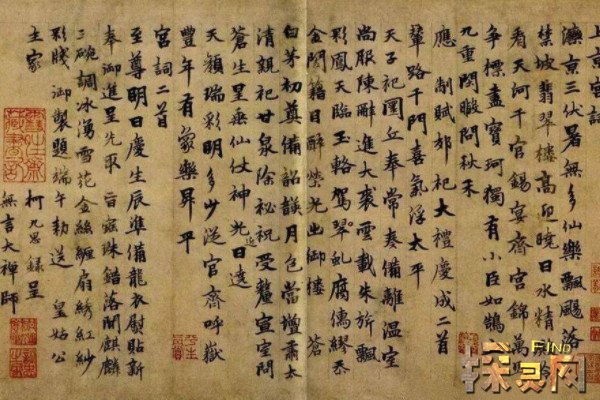 上京宮詞
灤京三伏暑無多仙樂飄颺落
禁坡翡翠樓高迎曉日水精
看天河千官錫宴齋宮錦萬
爭標盡寶珂獨有小臣如鵠
九重閒暇問秋禾
應制賦郊祀大禮慶成二首
輦路千門喜氣浮太平
天子祀圜丘奉常奏備離溫室
尚服陳辭進大裘雲載朱旂飄
彩鳳天臨玉輅駕翠虬腐儒繆忝
金閨籍日醉榮光出御樓 蒼
白茅初奠備韶頀月色當壇肅太
清親祀甘泉除祕祝受釐宣室問
蒼生星垂仙仗神光近日遶
天顏瑞彩明多少從官齋呼嶽
豐年有象樂昇平
宮詞二首
至尊明日慶生辰準備龍衣慰貼新
奉御進呈先取旨寶珠錯落間麒麟
碗調冰湧雪花金絲纏扇綉紅紗
彩牋御製題端午勑送 皇姑公
主家
柯九思錄呈
無言大禪師
FIND
探灵网